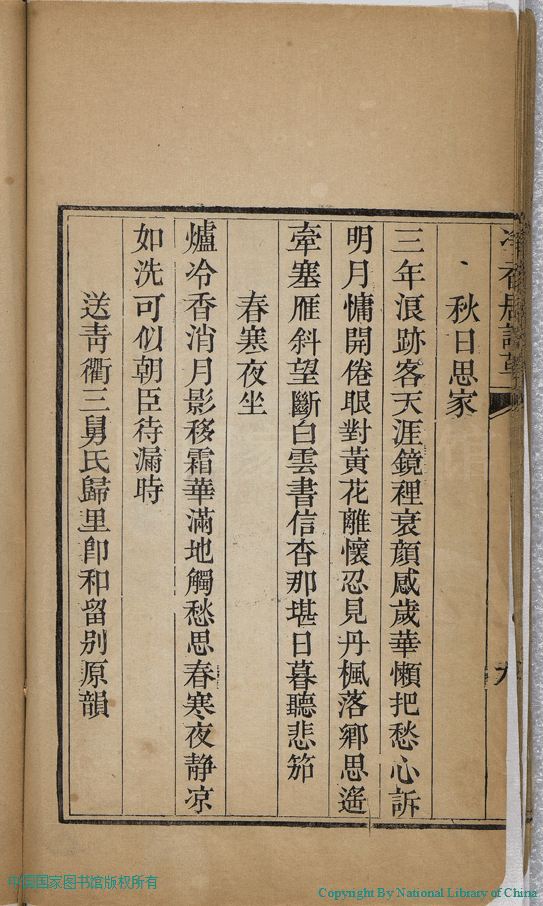 秋日思家
三年浪跡客天涯鏡裡衰顔感歲華懶把愁心訴
明月慵開倦眼對黃花離懷忍見丹楓落鄉思遙
牽塞雁斜望斷白雲書信杳那堪日暮聽悲笳
春寒夜坐
爐冷香消月影移霜華滿地觸愁思春寒夜静凉
如洗可似朝臣待漏時
送靑衢三舅氏歸里卽和留别原韻
中国国家图书馆版权所有
Copyright By National Library of China